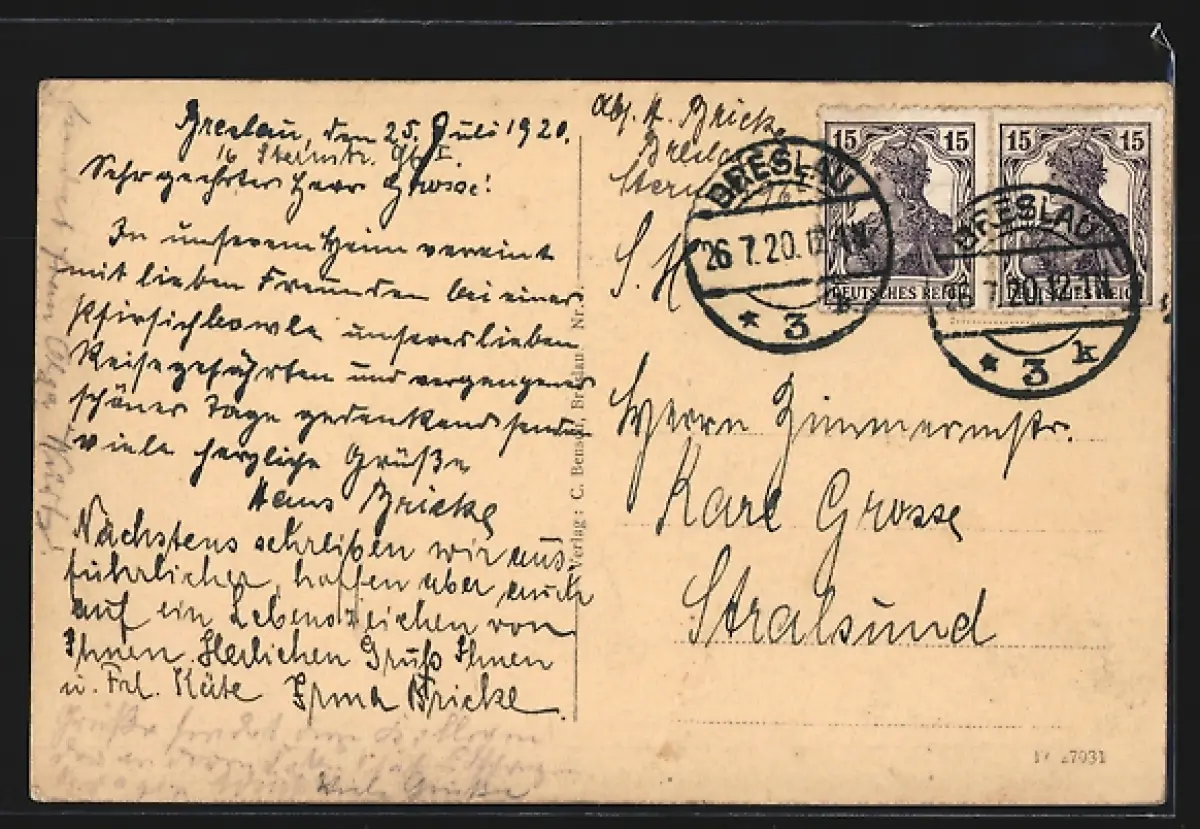 Breslau, den 25. Juli 1920.
16 Sternstr.
Sehr geehrter Herr Grosse!
In unserem Heim vereint
mit lieben Freunden bei einer
Pfirsichbowle unseres lieben
Reisegefährten und vergangener
schöner Tage gedenkend senden
viele herzliche Grüße
Hans Bricke
Nächstens schreiben wir aus-
führlicher, hoffen aber auch
auf ein Lebenszeichen von
Ihnen. Herlichen Gruß Ihnen
u. Frl. Käte Irma Bricke.
Grüße sendet
Viele Grüße
Verlag: C. Breslau Nr.
Abs. H. Bricke
Breslau
Stern
S. H
15 15
15 15
DEUTSCHES REICH
DEUTSCHES REICH
BRESLAU
26.7.20.12-1N
* 3 k
BRESLAU
26.7.20.12-1N
* 3 k
Herrn Zimmermstr.
Karl Grosse
Stralsund